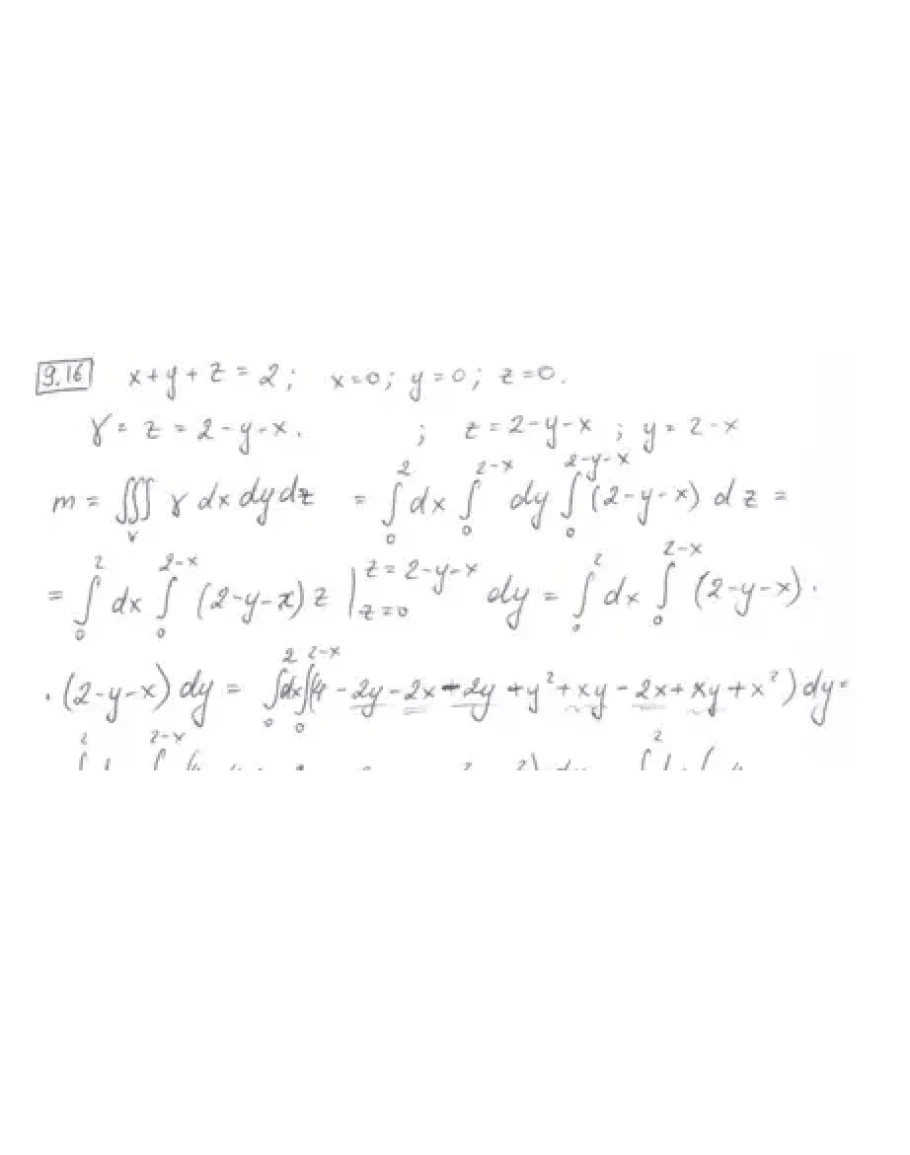 9.16 x+y+z=2; x=0; y=0; z=0.
γ=z=2-y-x. ; z=2-y-x ; y=2-x
m = ∭_V γ dx dy dz = ∫_0^2 dx ∫_0^{2-x} dy ∫_0^{2-y-x} (2-y-x) dz =
= ∫_0^2 dx ∫_0^{2-x} (2-y-x) z |_{z=0}^{z=2-y-x} dy = ∫_0^2 dx ∫_0^{2-x} (2-y-x) ·
· (2-y-x) dy = ∫_0^2 dx ∫_0^{2-x} (4 - 2y - 2x - 2y + y² + xy - 2x + xy + x²) dy =